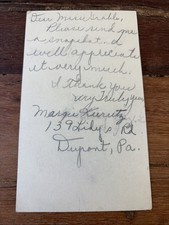 Dear Miss Grable,
Please send me
a snapshot. I
well appreciate
it very much.
I thank you
Very Truly yours
Margie
139 Lily's
Dupont, Pa.